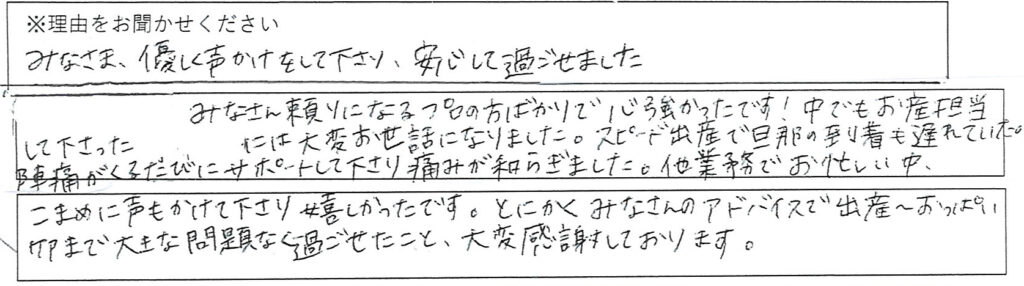 ※理由をお聞かせください
みなさま、優しく声かけをして下さり、安心して過ごせました
みなさん頼りになるプロの方ばかりで心強かったです!中でもお産担当
して下さった には大変お世話になりました。スピード出産で旦那の到着も遅れていた。
陣痛がくるたびにサポートして下さり痛みが和らぎました。他業務でお忙しい中、
こまめに声もかけて下さり嬉しかったです。とにかくみなさんのアドバイスで出産〜おっぱい
まで大きな問題なく過ごせたこと、大変感謝しております。